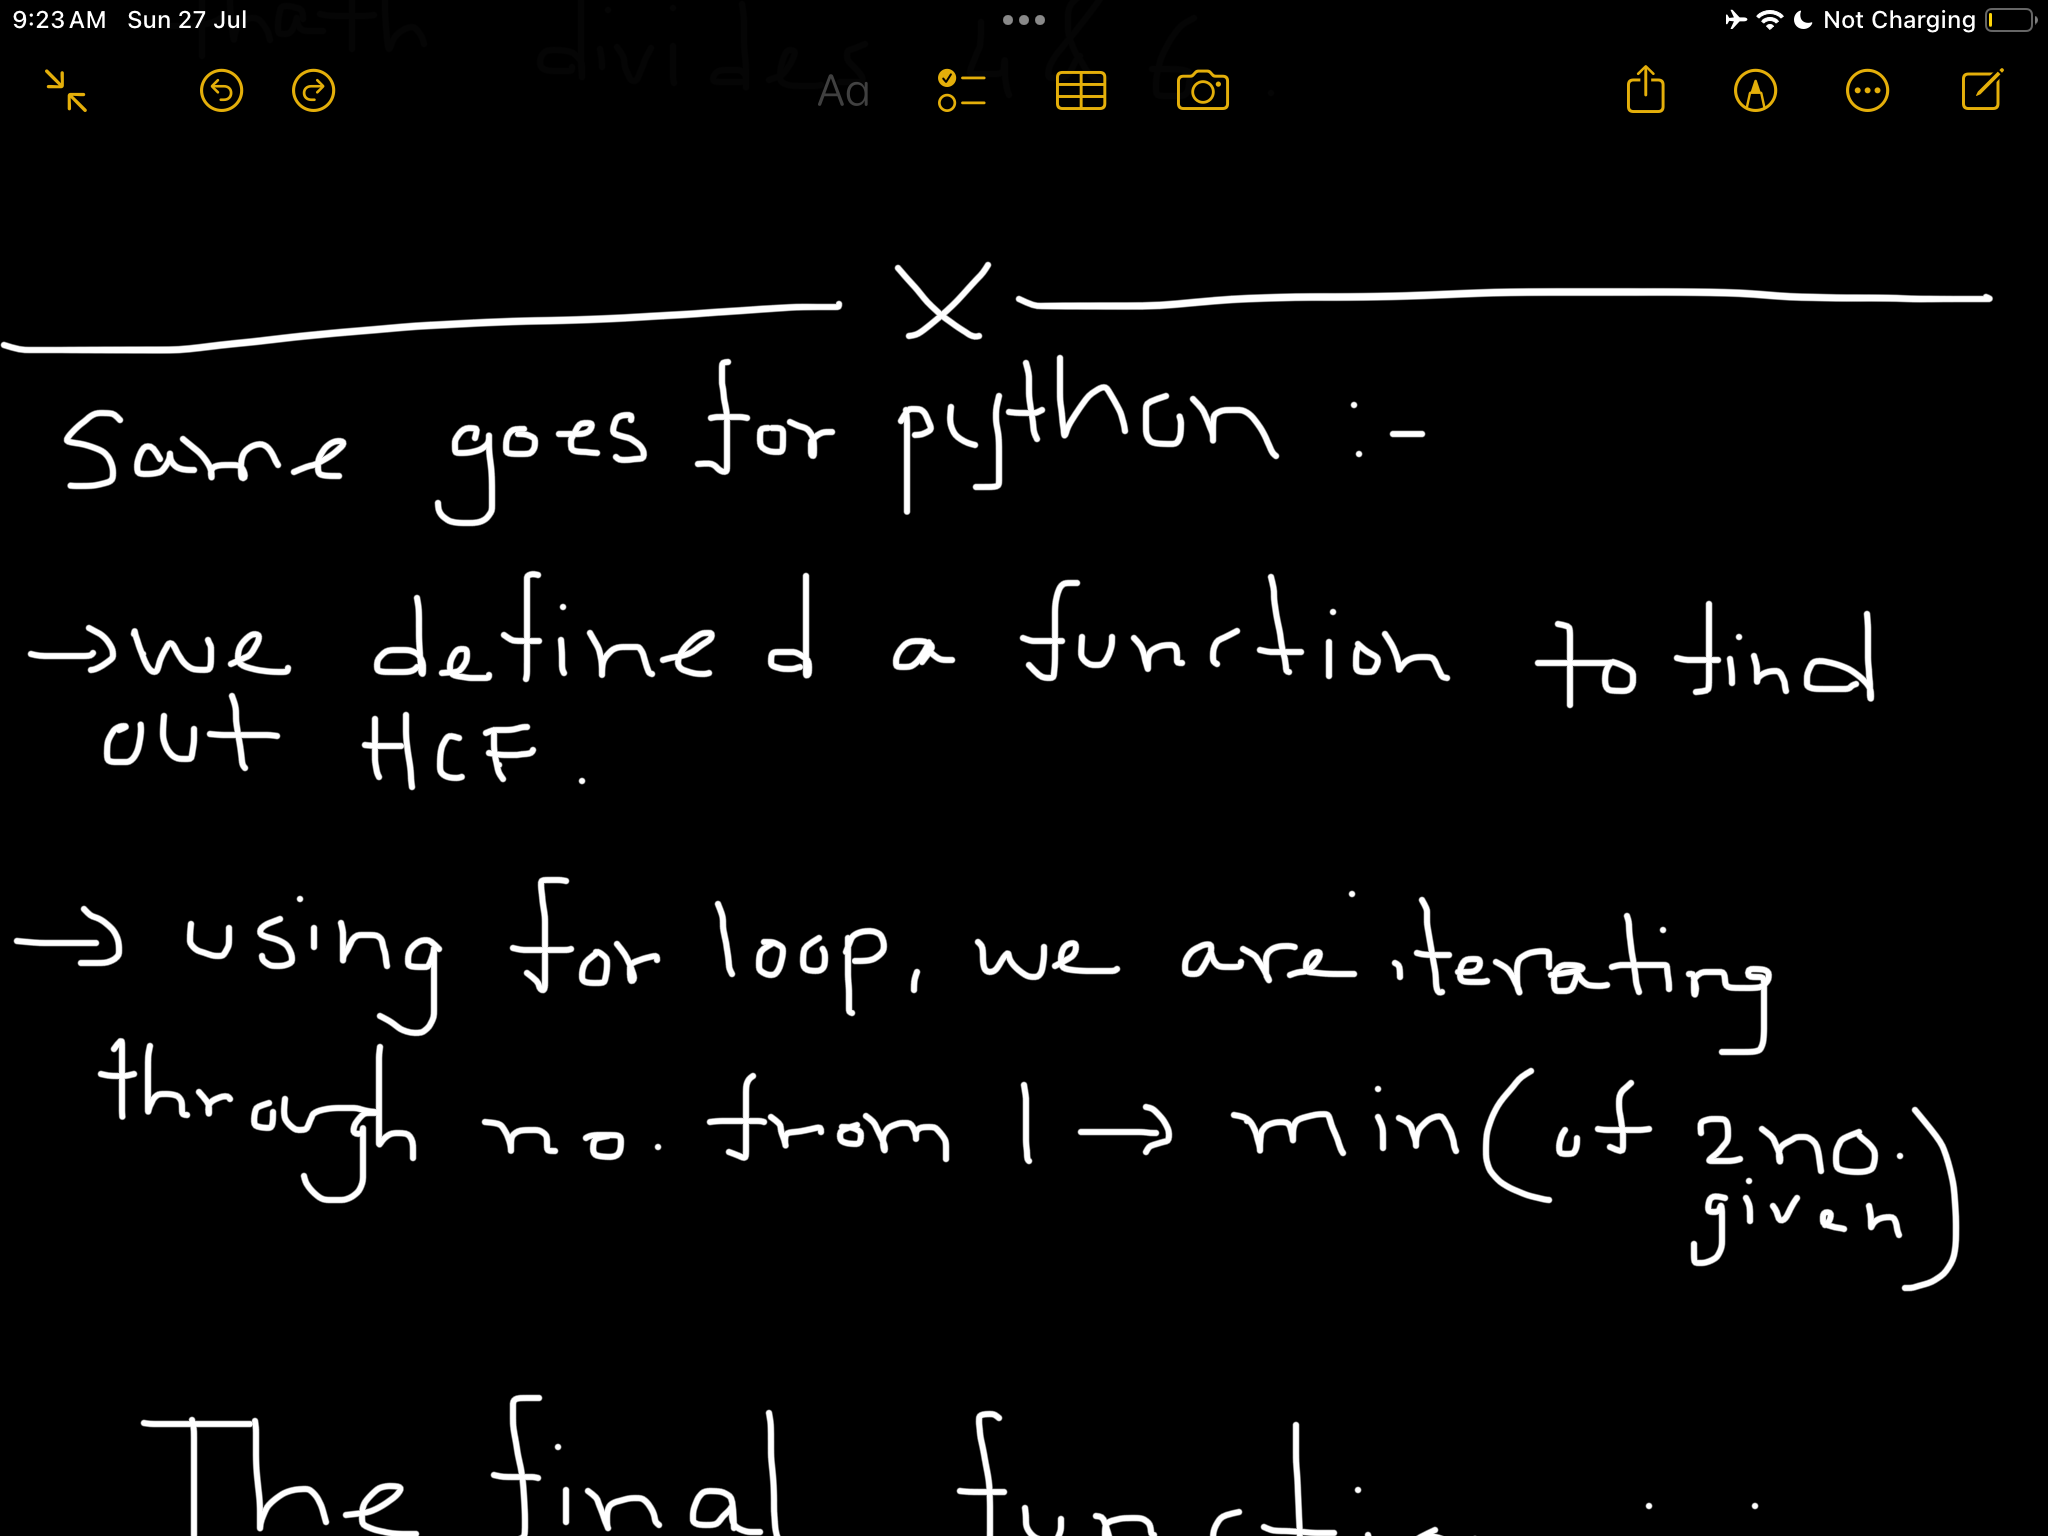 9:23 AM Sun 27 Jul
Not Charging
math divides 4 & 6.
Aa
X
Same goes for python :-
→ we defined a function to find
out HCF.
→ using for loop, we are iterating
through no. from 1 → min (of 2 no.
given)
The final function